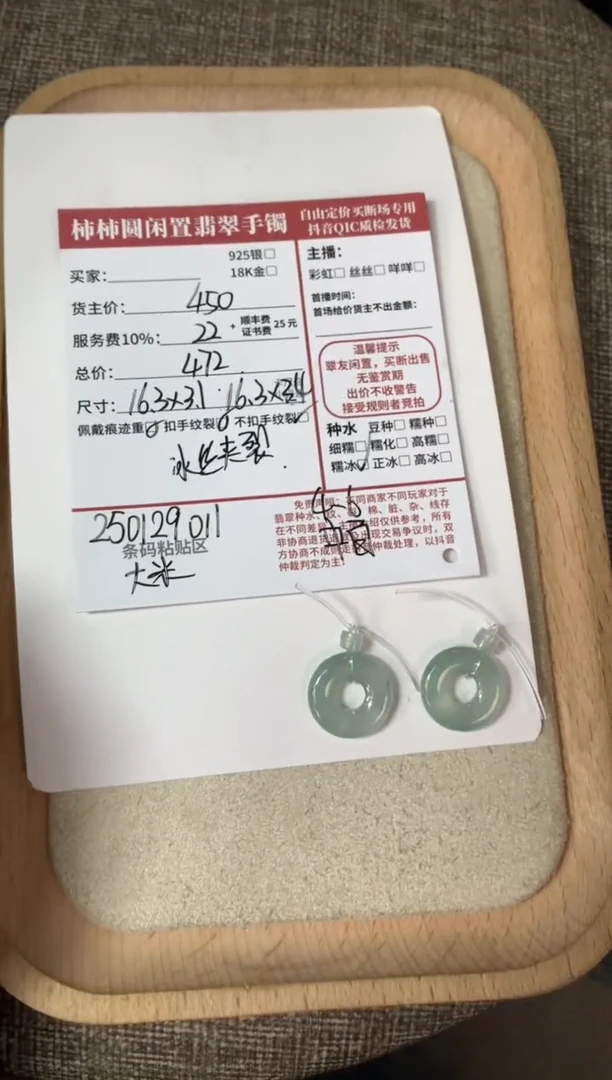 柿柿圆闲置翡翠手镯
自由定价买断场专用
抖音QIC质检发货
925银□
买家:
18K金□
货主价: 450
服务费10%: 22 + 顺丰费 证书费 25元
总价: 472
尺寸: 16.3×3.1 16.3×3.4
佩戴痕迹重□ 扣手纹裂□ 不扣手纹裂□
冰丝夹裂.
主播:
彩虹□ 丝丝□ 咩咩□
首播时间:
首场给价货主不出金额:
温馨提示
翠友闲置,买断出售
无鉴赏期
出价不收警告
接受规则者竞拍
种水 豆种□ 糯种□
细糯□ 糯化□ 高糯□
糯冰□ 正冰□ 高冰□
250129 011
条码粘贴区
大米
4-6
免责声明:不同商家不同玩家对于
翡翠种水、纹、棉、脏、杂、线存
在不同差异,绍仅供参考,所有
非协商退货退出现交易争议时,双
方协商不成则走仲裁处理,以抖音
仲裁判定为主!